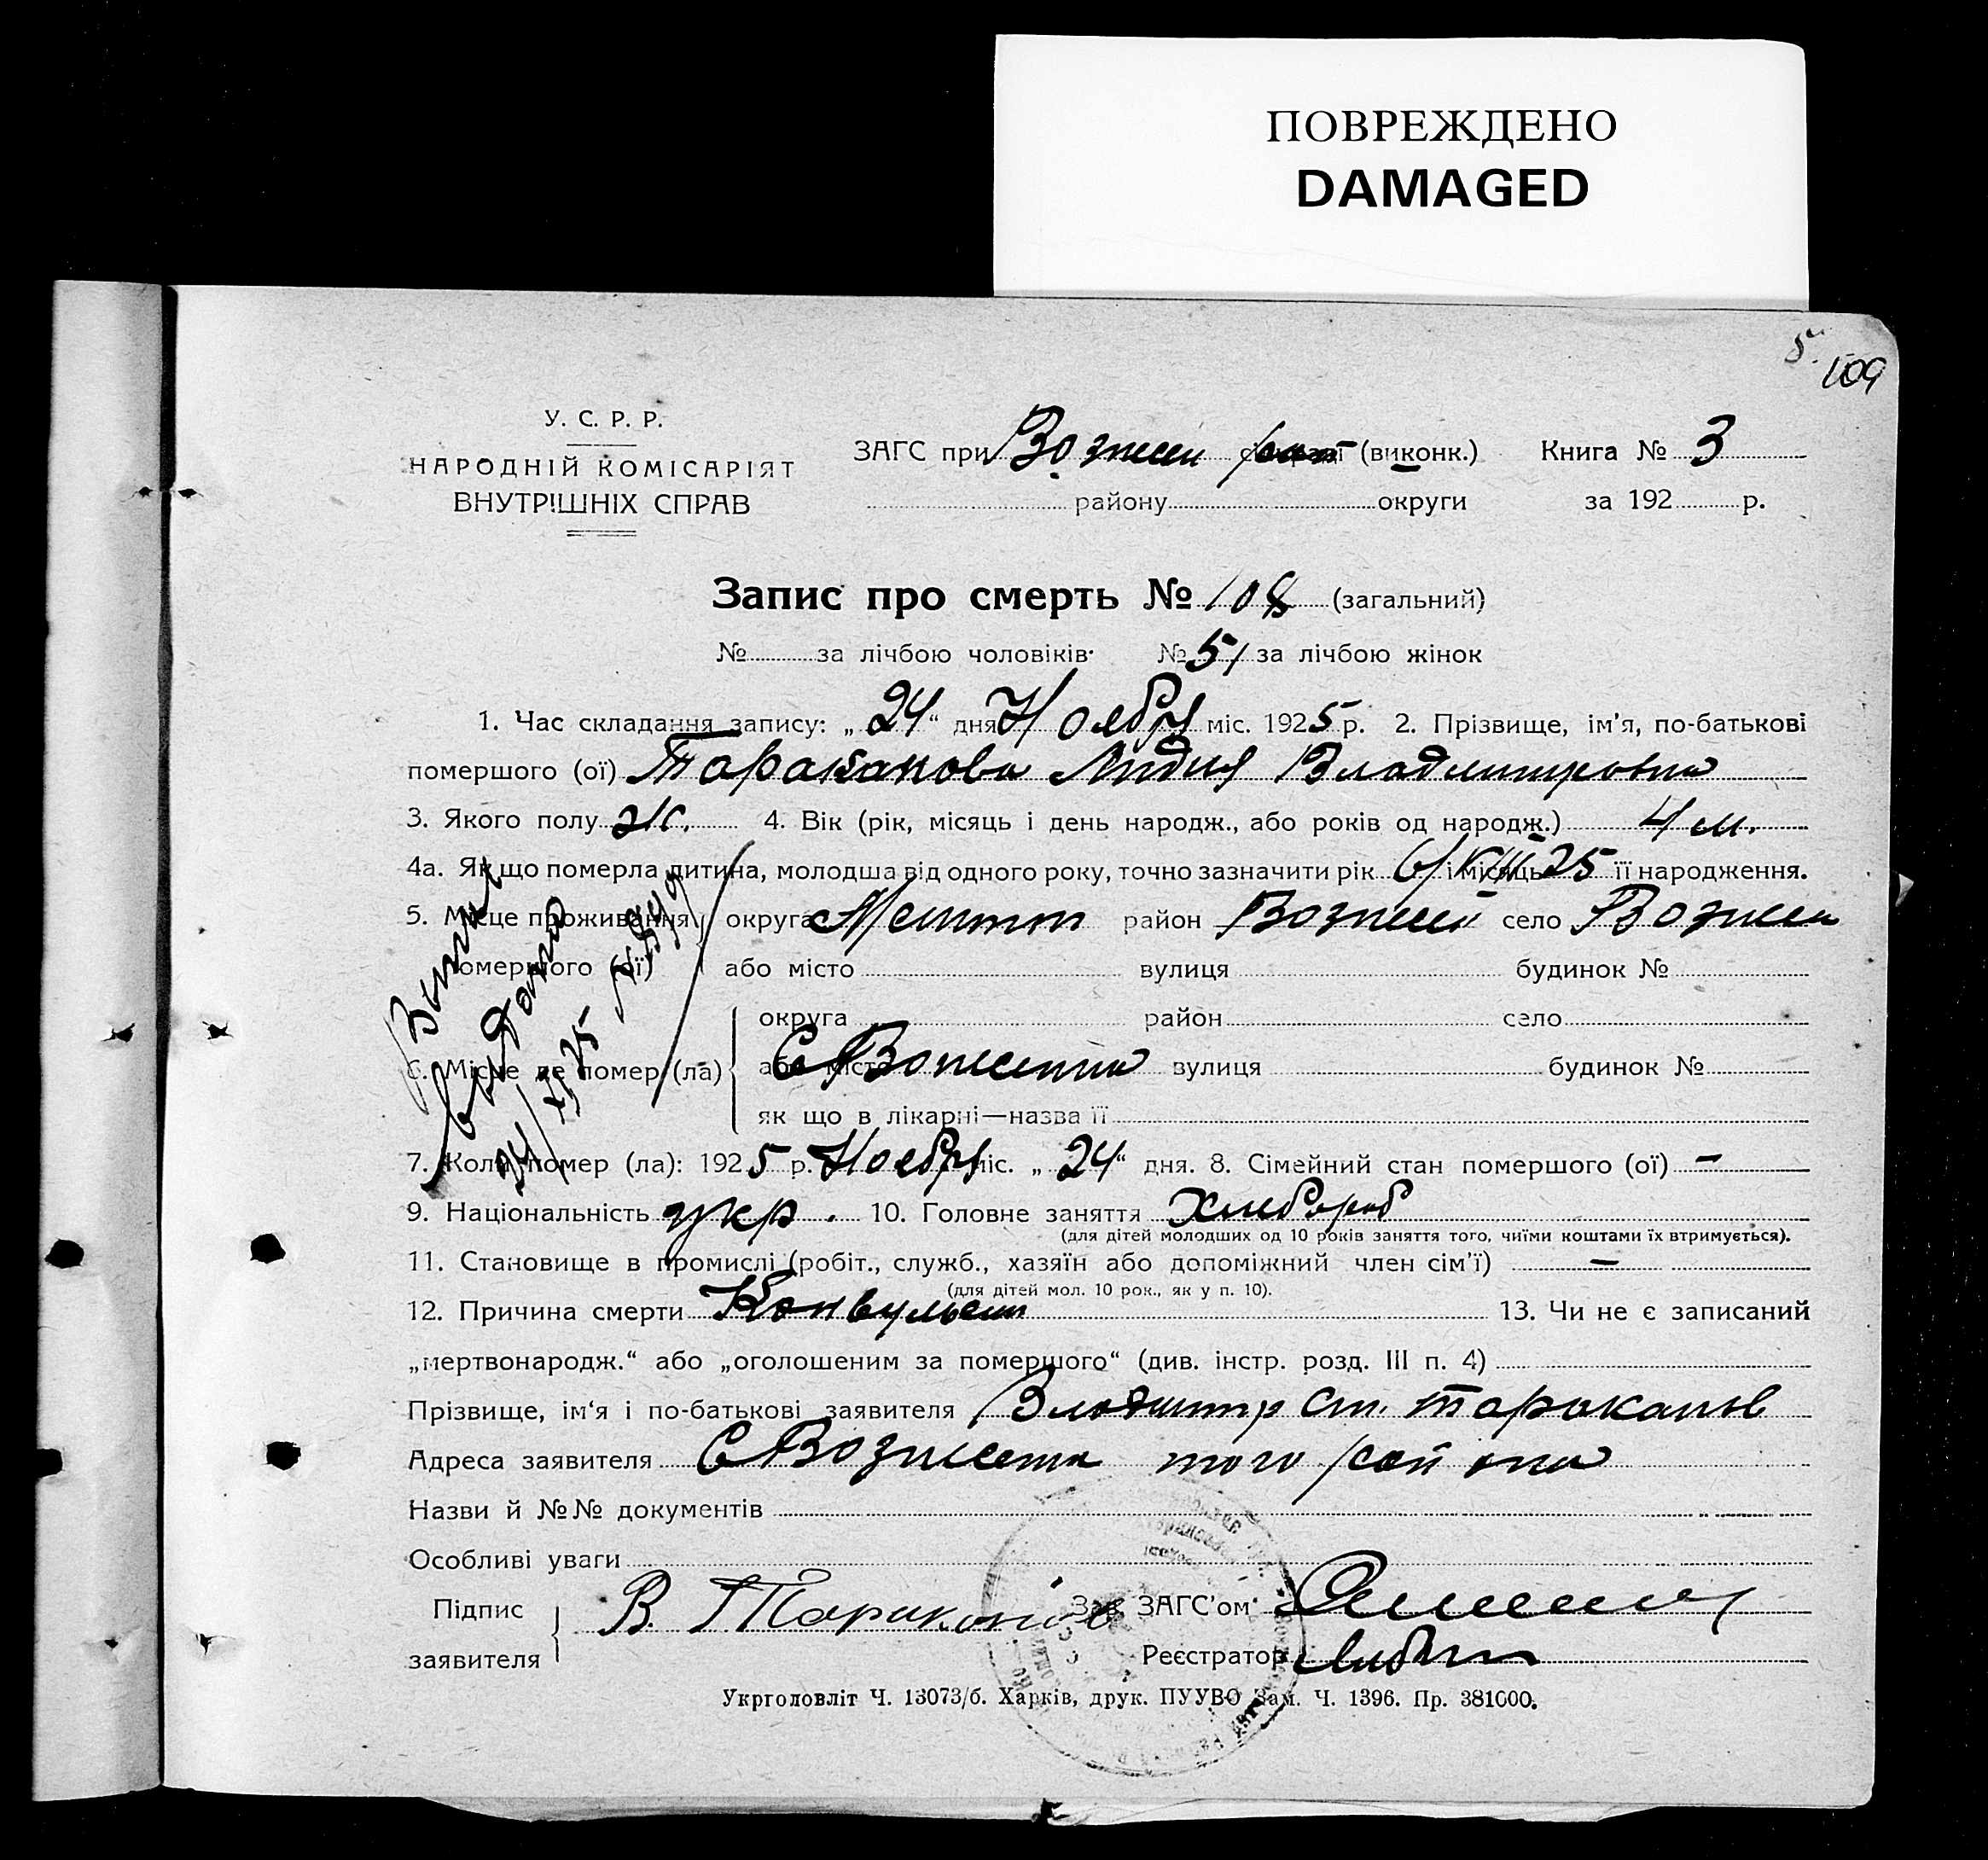 ПОВРЕЖДЕНО
DAMAGED
109
У. С. Р. Р.
НАРОДНІЙ КОМІСАРІЯТ
ВНУТРІШНІХ СПРАВ
ЗАГС при Вознесен рай (виконк.) Книга № 3
району округи за 192 р.
Запис про смерть № 108 (загальний)
№ за лічбою чоловіків № 51 за лічбою жінок
1. Час складання запису: „ 24 “ дня Ноября міс. 1925 р. 2. Прізвище, ім’я, по-батькові
помершого (ої) Тараканова Лидия Владимировна
3. Якого полу ж. 4. Вік (рік, місяць і день народж., або років од народж.) 4 м.
4а. Як що померла дитина, молодша від одного року, точно зазначити рік 6/VIII 25 і місяць її народження.
5. Місце проживання округа Мелит район Вознесен село Вознесен
помершого (ої) або місто вулиця будинок №
округа район село
6. Місце де помер (ла) або місто С Вознесенка вулиця будинок №
як що в лікарні—назва її
7. Коли помер (ла): 1925 р. Ноября міс. „ 24 “ дня. 8. Сімейний стан помершого (ої) –
9. Національність укр. 10. Головне заняття Хлебороб
(для дітей молодших од 10 років заняття того, чиїми коштами їх втримується).
11. Становище в промислі (робіт., служб., хазяїн або допоміжний член сім’ї) –
(для дітей мол. 10 рок., як у п. 10).
12. Причина смерти Конвульсии 13. Чи не є записаний
„мертвонародж.“ або „оголошеним за помершого“ (див. інстр. розд. III п. 4)
Прізвище, ім‘я і по-батькові заявителя Владимир Ст. Тараканов
Адреса заявителя С Вознесенка того района
Назви й №№ документів
Особливі уваги
Підпис В. Тараканов Зав. ЗАГС’ом
заявителя Реєстратор
Укрголовліт Ч. 13073/б. Харків, друк. ПУУВО Зам. Ч. 1396. Пр. 381000.